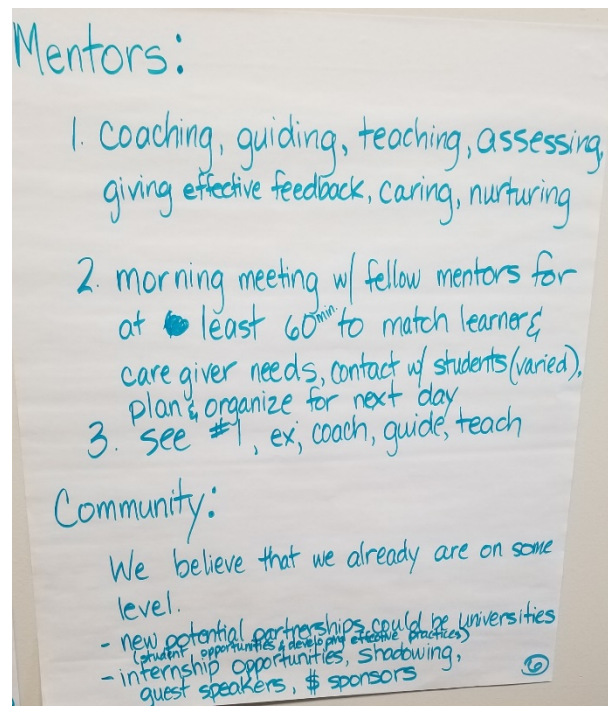 Mentors:
1. coaching, guiding, teaching, assessing,
giving effective feedback, caring, nurturing
2. morning meeting w/ fellow mentors for
at least 60 min. to match learner &
care giver needs, contact w/ students (varied),
plan & organize for next day
3. see #1, ex, coach, guide, teach
Community:
We believe that we already are on some
level.
- new potential partnerships could be universities
(student opportunities & developing effective practices)
- internship opportunities, shadowing,
guest speakers, $ sponsors
6